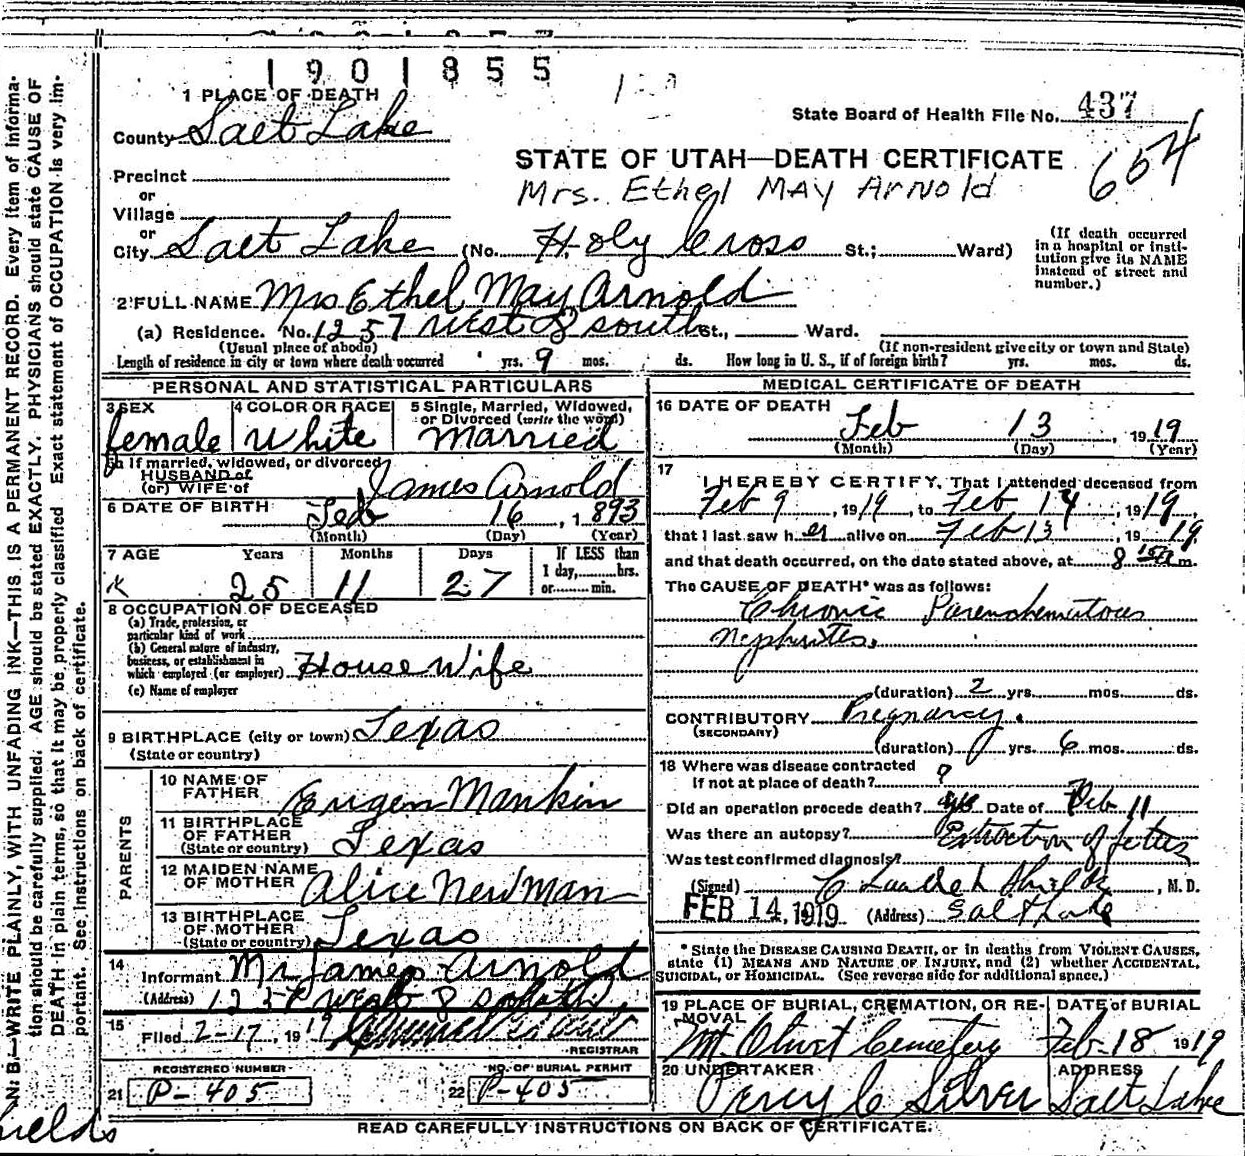 1901855
1 PLACE OF DEATH
State Board of Health File No. 437
County Salt Lake
654
STATE OF UTAH—DEATH CERTIFICATE
Precinct
Mrs. Ethel MAY ARNOLD
or
Village
or
City Salt Lake (No. Holy Cross St.; Ward)
(If death occurred in a hospital or institution give its NAME instead of street and number.)
2 FULL NAME Mrs Ethel May Arnold
(a) Residence. No. 1257 West 8 South St., Ward.
(Usual place of abode) (If non-resident give city or town and State)
Length of residence in city or town where death occurred yrs. 9 mos. ds. How long in U. S., if of foreign birth? yrs. mos. ds.
PERSONAL AND STATISTICAL PARTICULARS
3 SEX 4 COLOR OR RACE 5 Single, Married, Widowed, or Divorced (write the word)
female White Married
If married, widowed, or divorced
HUSBAND of
(or) WIFE of James Arnold
6 DATE OF BIRTH Feb 16, 1893
(Month) (Day) (Year)
7 AGE Years Months Days If LESS than
1 day, hrs.
25 11 27 or min.
8 OCCUPATION OF DECEASED
(a) Trade, profession, or
particular kind of work
(b) General nature of industry,
business, or establishment in
which employed (or employer) House Wife
(c) Name of employer
9 BIRTHPLACE (city or town) Texas
(State or country)
PARENTS
10 NAME OF
FATHER Eugen Mankin
11 BIRTHPLACE
OF FATHER
(State or country) Texas
12 MAIDEN NAME
OF MOTHER Alice Newman
13 BIRTHPLACE
OF MOTHER
(State or country) Texas
14
Informant Mr James Arnold
(Address) 1257 West 8 South
15
Filed 2-17, 1919
REGISTRAR
REGISTERED NUMBER NO. OF BURIAL PERMIT
21 P-405 22 P-405
MEDICAL CERTIFICATE OF DEATH
16 DATE OF DEATH
Feb 13, 1919
(Month) (Day) (Year)
17 I HEREBY CERTIFY, That I attended deceased from
Feb 9, 1919, to Feb 14, 1919,
that I last saw h er alive on Feb 13, 1919
and that death occurred, on the date stated above, at 8 15a m.
The CAUSE OF DEATH* was as follows:
Chronic Parenchematous
Nephrites.
(duration) 2 yrs. mos. ds.
CONTRIBUTORY Pregnancy.
(SECONDARY)
(duration) 0 yrs. 6 mos. ds.
18 Where was disease contracted
if not at place of death? ?
Did an operation precede death? yes Date of Feb 11
Was there an autopsy? Extraction of fetus
Was test confirmed diagnosis?
(Signed) Shields, M. D.
FEB 14, 1919 (Address) Salt Lake
*State the DISEASE CAUSING DEATH, or in deaths from VIOLENT CAUSES,
state (1) MEANS AND NATURE OF INJURY, and (2) whether ACCIDENTAL,
SUICIDAL, or HOMICIDAL. (See reverse side for additional space.)
19 PLACE OF BURIAL, CREMATION, OR REMOVAL DATE of BURIAL
Mt. Olivet Cemetery Feb-18 1919
20 UNDERTAKER ADDRESS
Percy C Silver Salt Lake
READ CAREFULLY INSTRUCTIONS ON BACK OF CERTIFICATE.
N. B.—WRITE PLAINLY, WITH UNFADING INK—THIS IS A PERMANENT RECORD. Every item of informa-
tion should be carefully supplied. AGE should be stated EXACTLY. PHYSICIANS should state CAUSE OF
DEATH in plain terms, so that it may be properly classified. Exact statement of OCCUPATION is very im-
portant. See instructions on back of certificate.